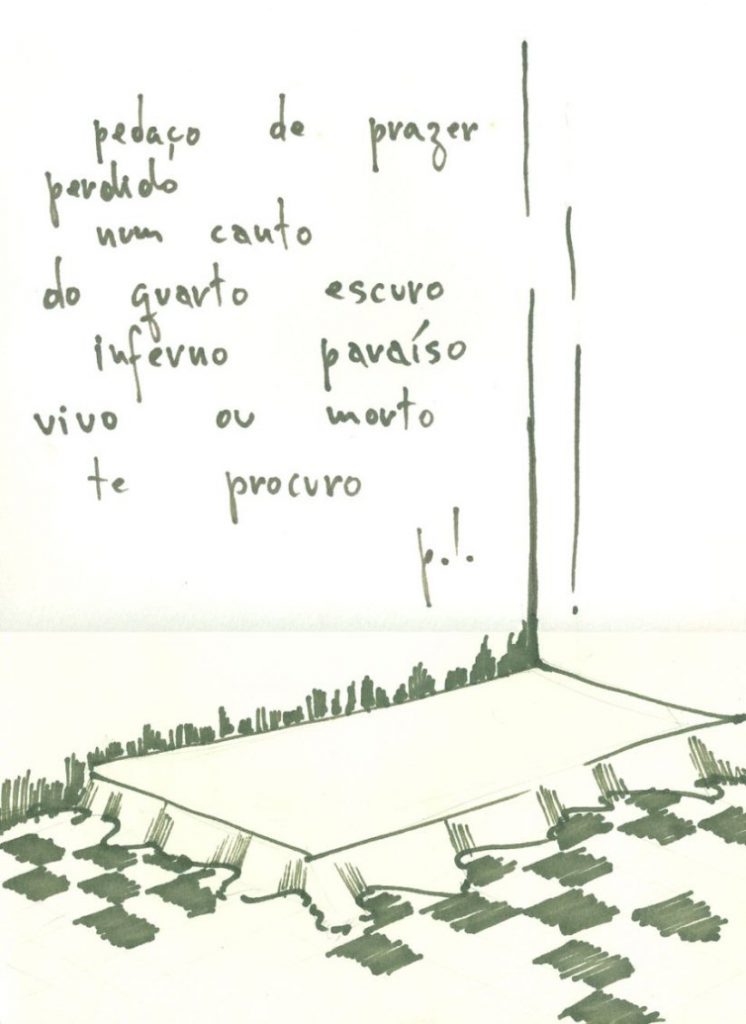 pedaço de prazer
perdido
num canto
do quarto escuro
inferno paraíso
vivo ou morto
te procuro
p.l.